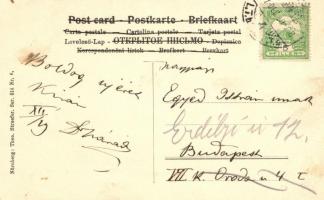 Post card - Postkarte - Briefkaart
Carte postale - Cartolina postale - Tarjeta postal
Levelező-Lap - ОТКРЫТОЕ ПИСЬМО - Dopisnice
Korrespondenční lístek - Brefkort - Brevkort
Boldog új évet
Kíván
XII/
Egyed István urnak
Erdélyi u 12.
Budapest
VII k. Orods u 4 I
Nürnberg: Theo. Stroefer. Ser. 214 Nr. 6.